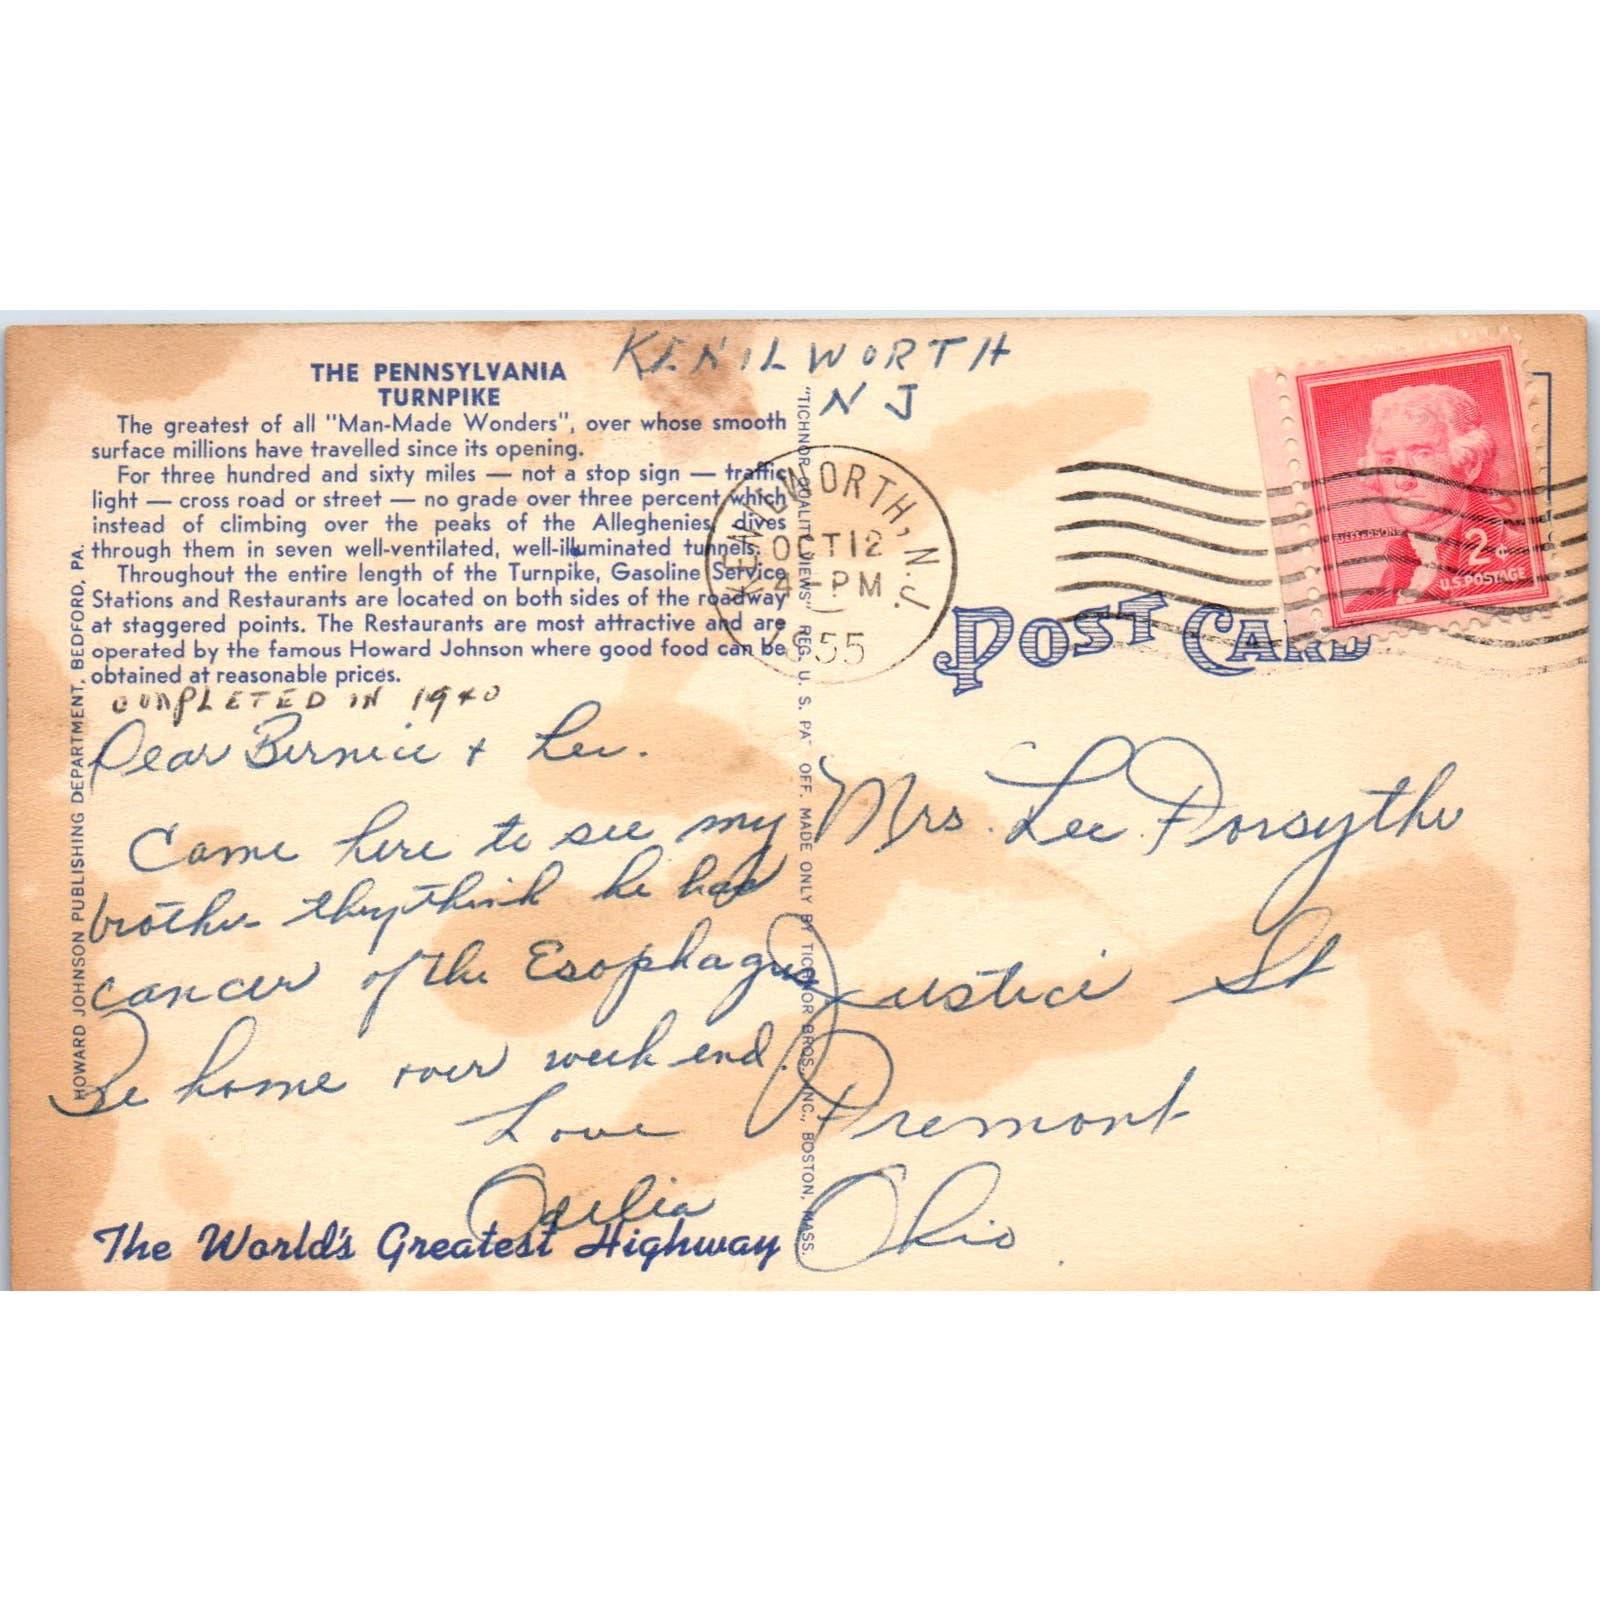 KENILWORTH
NJ
THE PENNSYLVANIA
TURNPIKE
The greatest of all "Man-Made Wonders", over whose smooth
surface millions have travelled since its opening.
For three hundred and sixty miles — not a stop sign — traffic
light — cross road or street — no grade over three percent which
instead of climbing over the peaks of the Alleghenies, dives
through them in seven well-ventilated, well-illuminated tunnels.
Throughout the entire length of the Turnpike, Gasoline Service
Stations and Restaurants are located on both sides of the roadway
at staggered points. The Restaurants are most attractive and are
operated by the famous Howard Johnson where good food can be
obtained at reasonable prices.
COMPLETED IN 1940
Dear Bernice + Lee.
Came here to see my
brother they think he has
cancer of the Esophagus
Be home over week end.
Love
The World's Greatest Highway
HOWARD JOHNSON PUBLISHING DEPARTMENT, BEDFORD, PA.
"TICHNOR QUALITY VIEWS" REG. U. S. PAT. OFF. MADE ONLY BY TICHNOR BROS., INC., BOSTON, MASS.
KENILWORTH, N.J.
OCT 12
4-PM
1955
JEFFERSON
2¢
U.S. POSTAGE
POST CARD
Mrs. Lee Forsythe
Justice St
Fremont
Ohio.